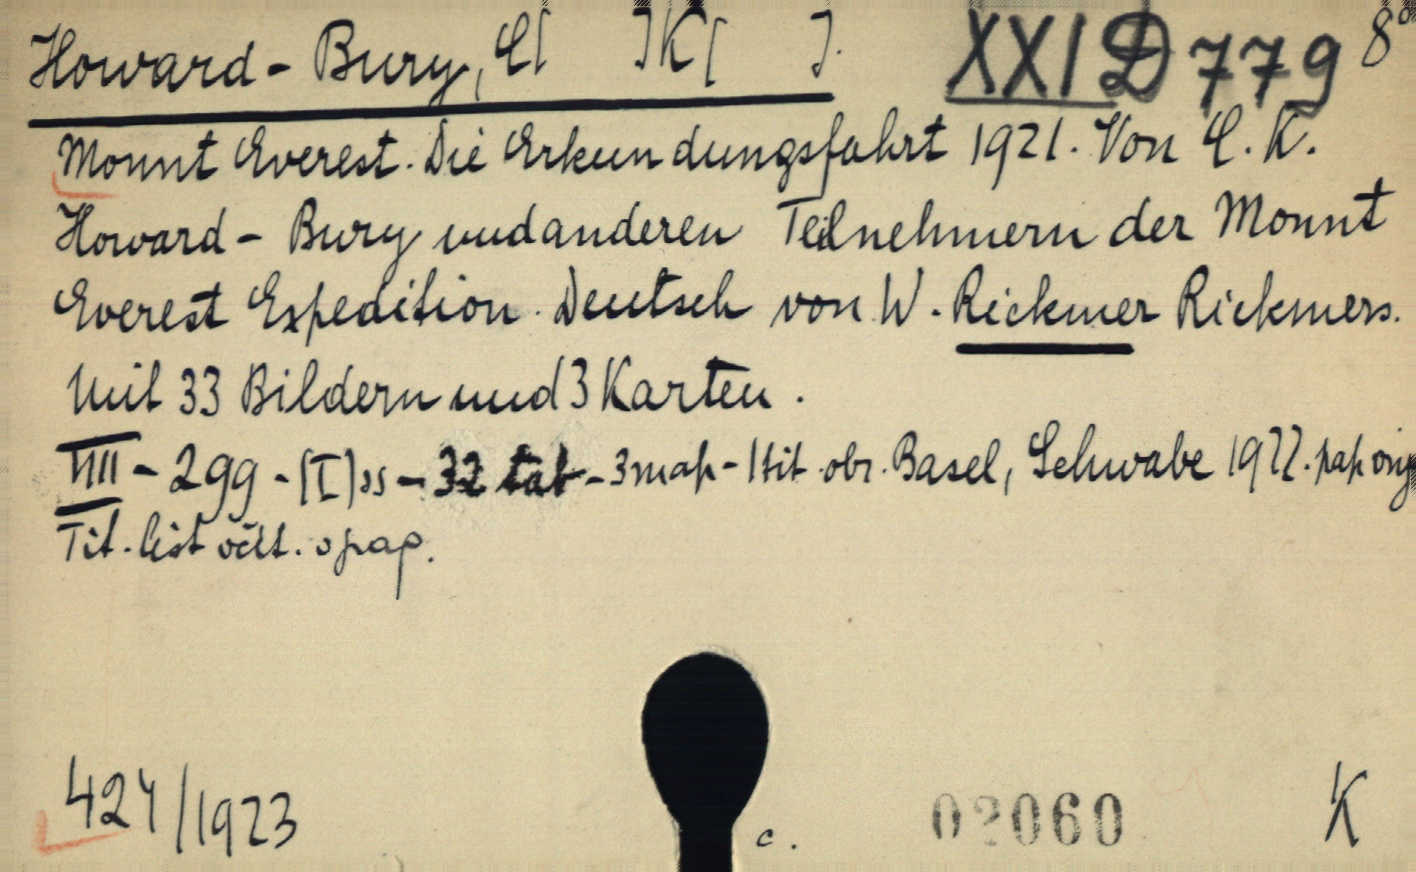 Howard-Bury, C[ ]K[ ]. XXI D 779 8°
Mount Everest. Die Erkundungsfahrt 1921. Von C. K.
Howard-Bury und anderen Teilnehmern der Mount
Everest Expedition. Deutsch von W. Rickmer Rickmers.
Mit 33 Bildern und 3 Karten.
VIII - 299 - [I] ss - 32 tab - 3 map - 1 tit. obr. Basel, Schwabe 1922. pap orig
Tit. list počt. s pap.
424/1923 c. 02060 K